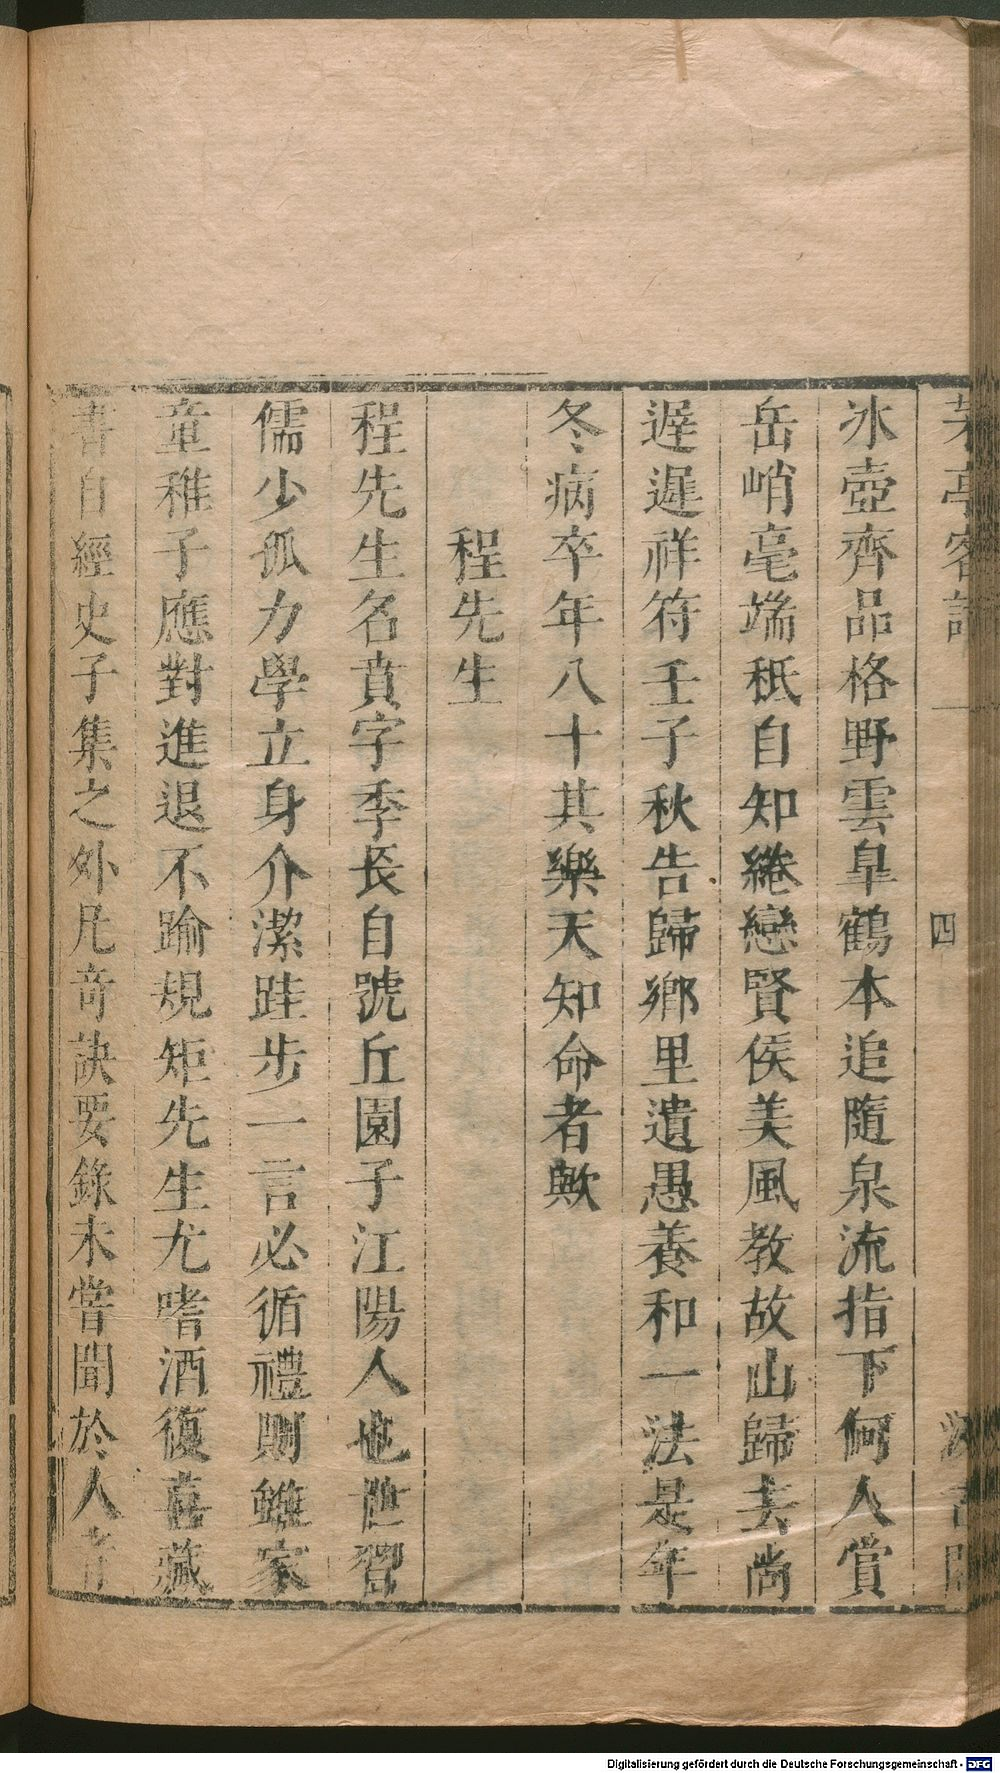 茅亭客話 四
冰壺齊品格野雲臯鶴本追隨泉流指下何人賞
岳峭毫端秪自知綣戀賢侯美風教故山歸去尚
遲遲祥符壬子秋告歸鄉里遺愚養和一法是年
冬病卒年八十其樂天知命者歟
程先生
程先生名賁字季長自號丘園子江陽人也世習
儒少孤力學立身介潔跬步一言必循禮則雖家
童稚子應對進退不踰規矩先生尤嗜酒復喜藏
書自經史子集之外凡奇訣要錄未嘗聞於人者
Digitalisierung gefördert durch die Deutsche Forschungsgemeinschaft - DFG